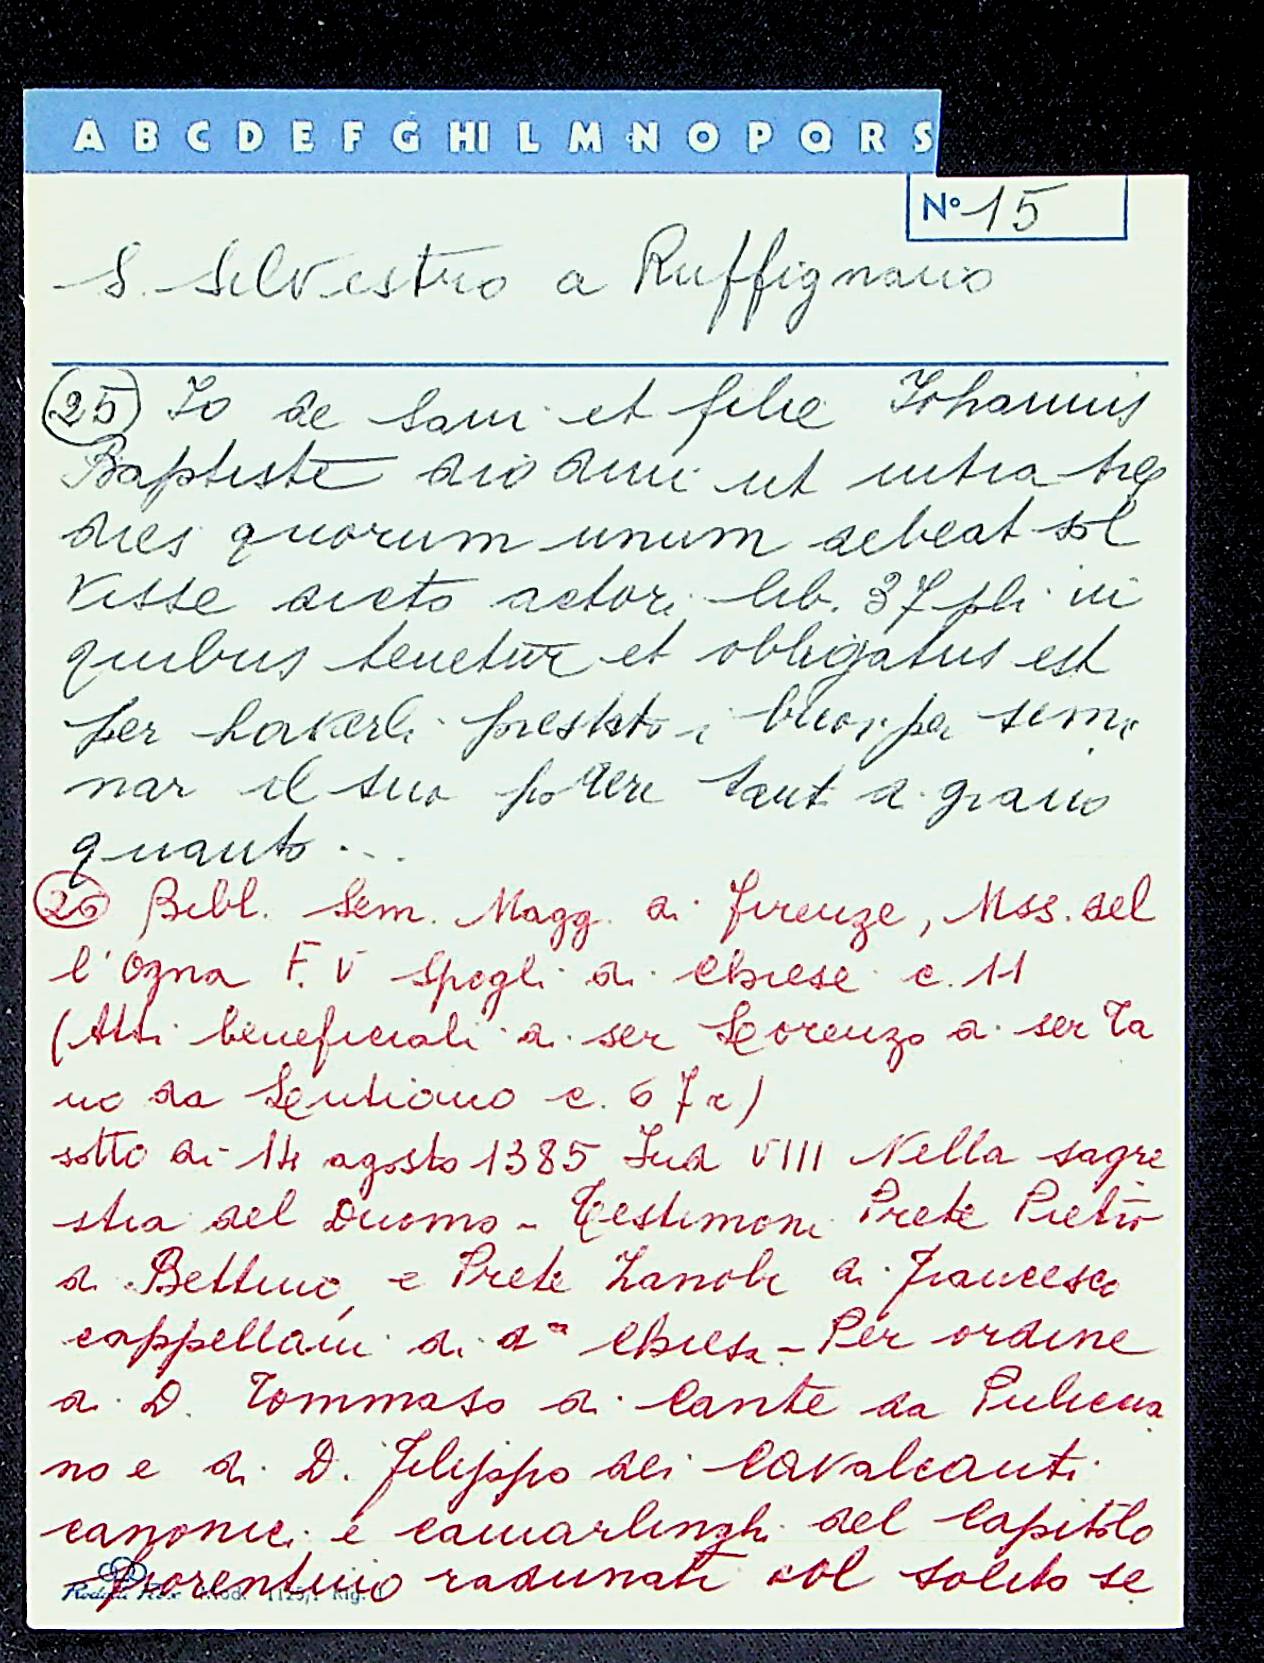 A B C D E F G HI L M N O P Q R S
N° 15
S. Silvestro a Ruffignano
(25) Io de Sani et filie Johannis
Baptiste dio dnni ut intra tres
dies quorum unum debeat sol
visse dicto actori lib. 37 pli in
quibus tenetur et obbligatus est
per haverli prestato i buoi per semi
nar il suo podere tant a grano
quanto ...
(26) Bibl. Sem. Magg. di Firenze, Mss. del
l'Ogna F. V Spogli di Chiese c. 11
(Atti beneficiali di ser Lorenzo di ser Ta
no da Lutiano c. 67 r)
sotto di 14 agosto 1385 Ind VIII Nella sagre
stia del Duomo - Testimoni Prete Pietro
di Bettino, e Prete Zanobi di Francesco
cappellani di da Chiesa - Per ordine
di D. Tommaso di Cante da Pulicia
no e di D. Filippo dei Cavalcanti
canonici e camarlinghi del Capitolo
fiorentino radunati col solito se